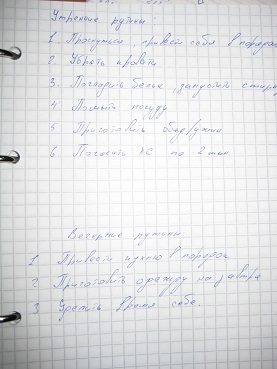 Утренние рутины:
1. Проснуться, привести себя в порядок
2. Убрать кровати
3. Погладить белье, запустить стирку
4. Помыть посуду
5. Приготовить обед/ужин
6. по 2
Вечерние рутины
1 Привести кухню в порядок
2 Приготовить одежду на завтра
3 Уделить время себе.